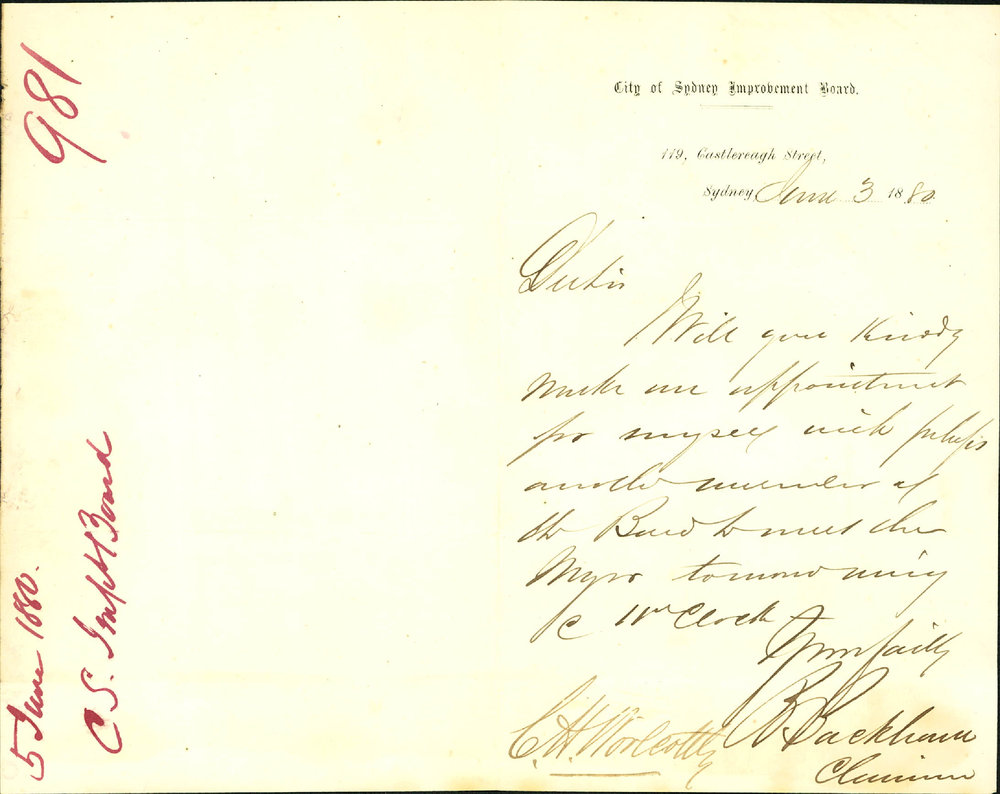 981
5 June 1880.
C S. Impt Board
City of Sydney Improvement Board.
119, Castlereagh Street,
Sydney, June 3 1880.
Dear Sir
Will you Kindly
make an appointment
for myself with perhaps
another member of
the Board to meet the
Mayor tomorrow
11 oClock
Yours faithly
B Backhouse
Chairman
C. H. Woolcott